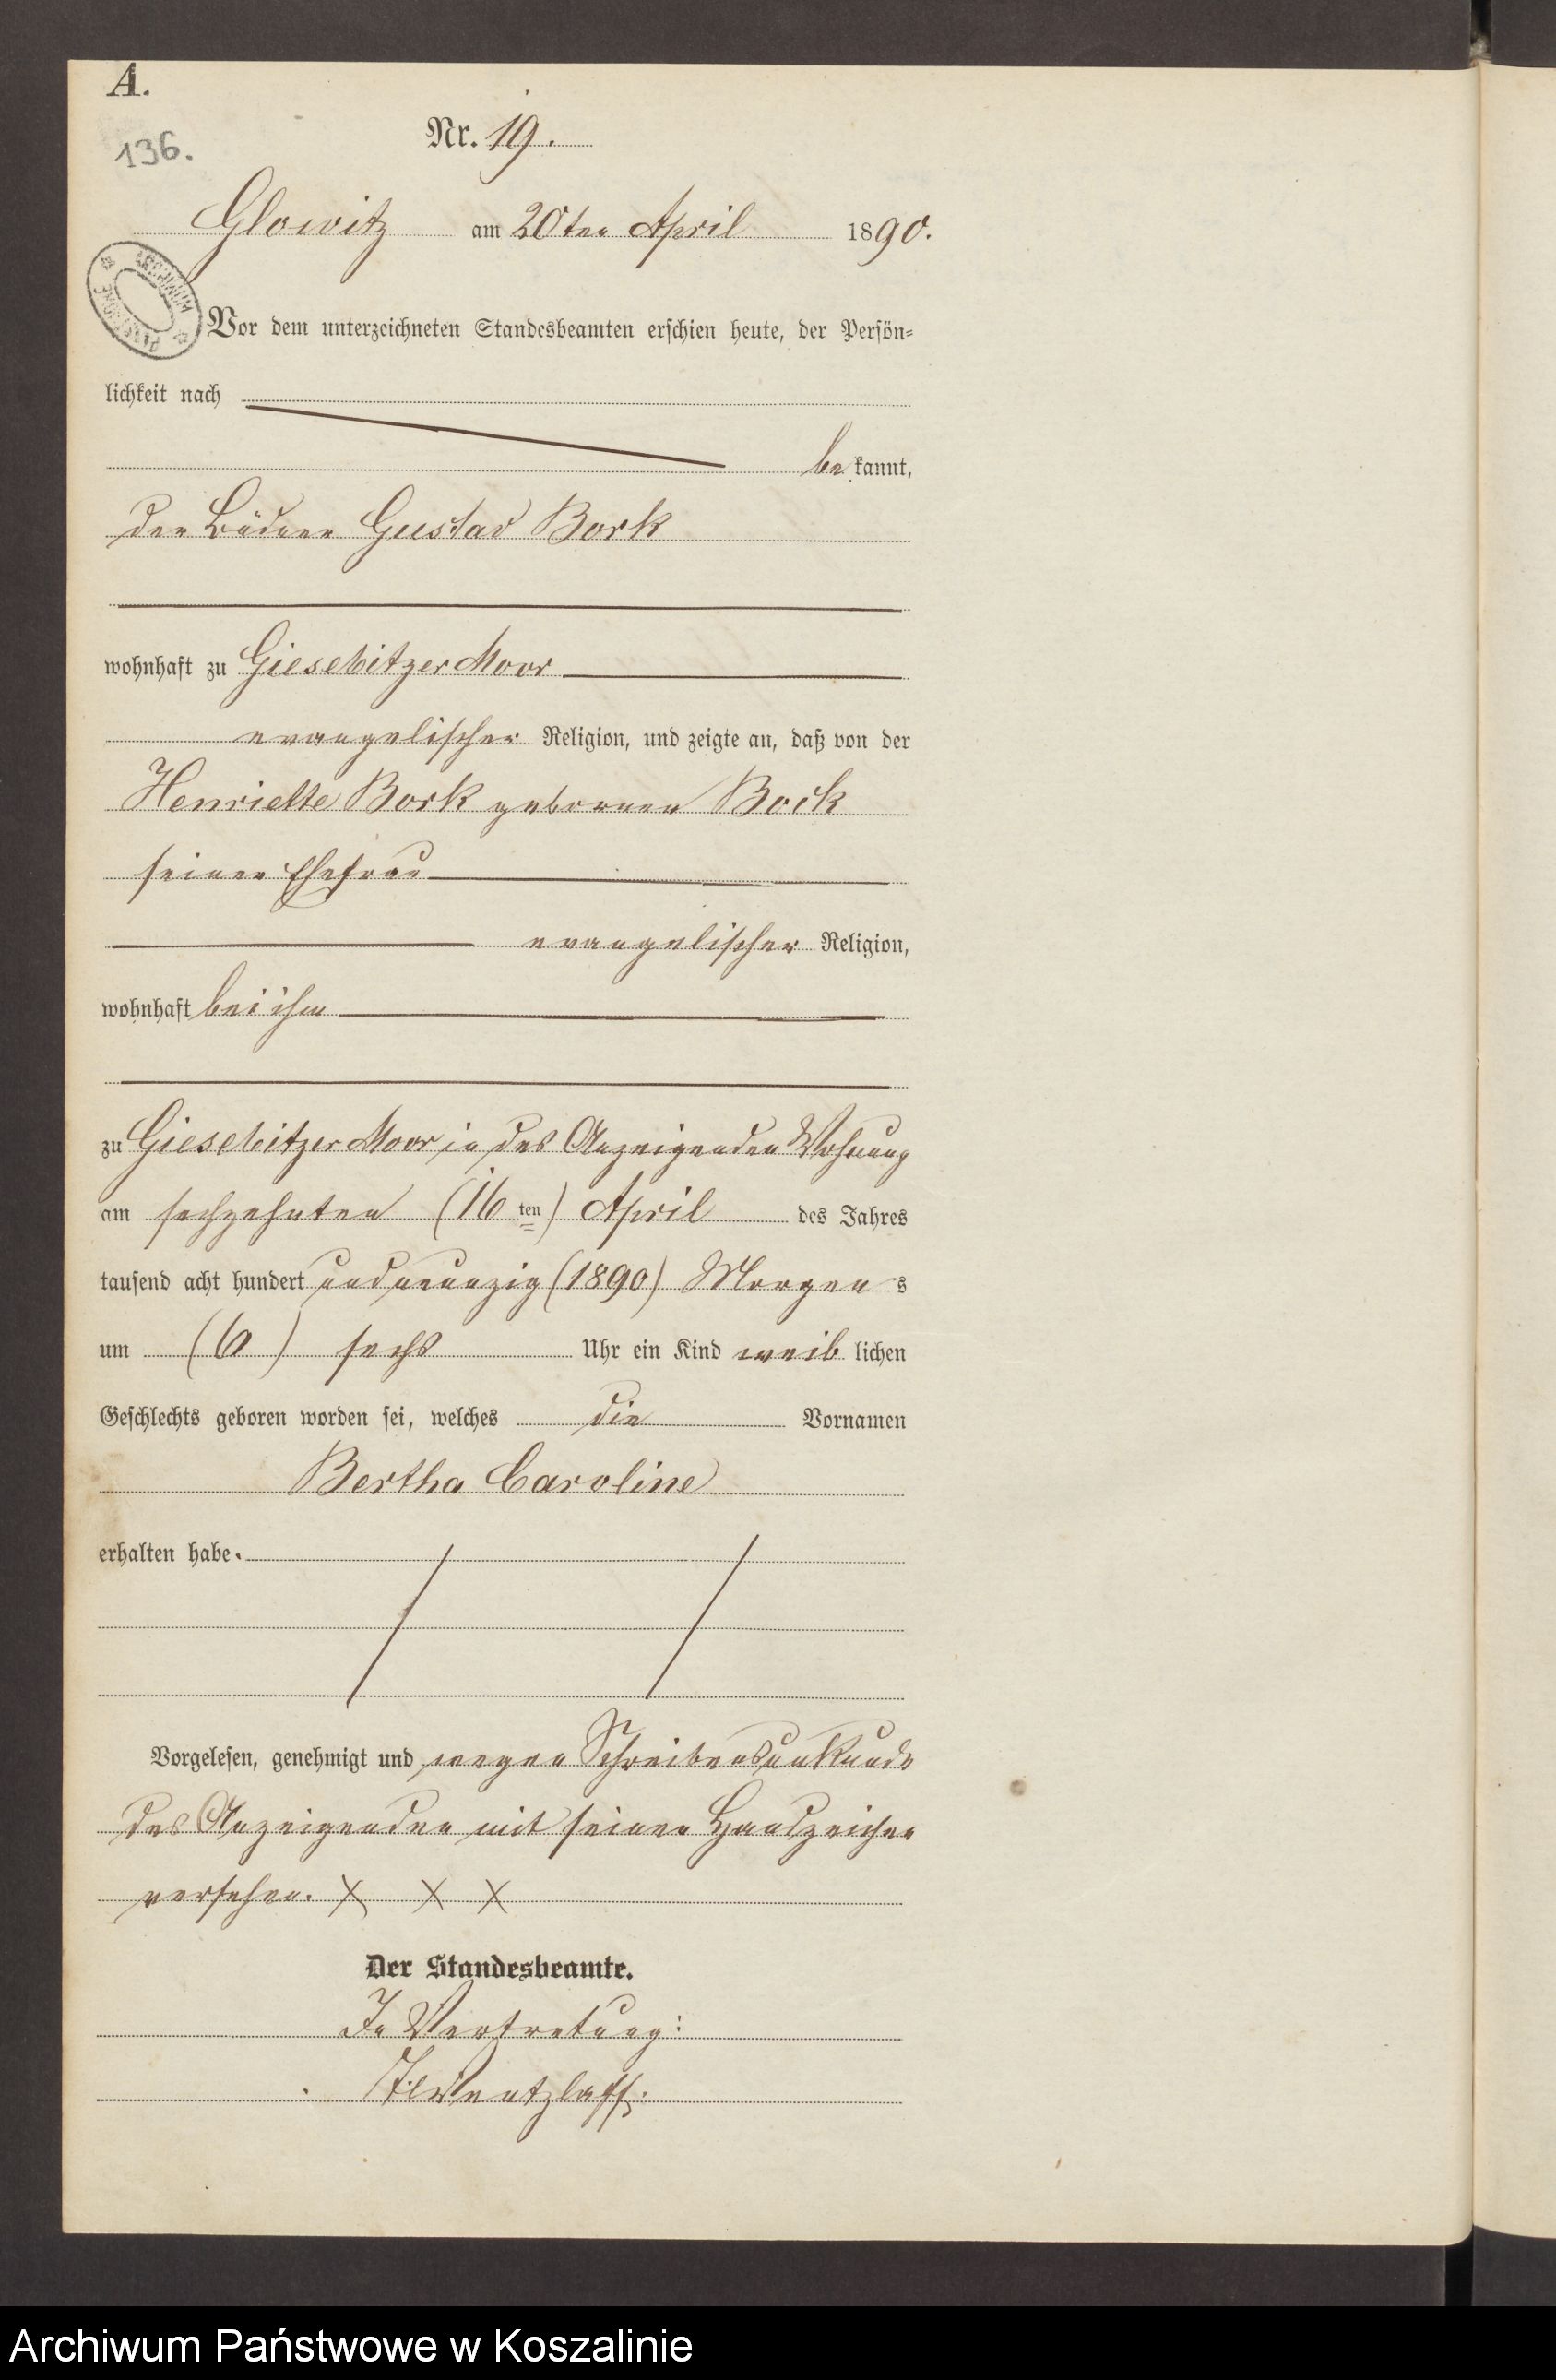 A.
136.
Nr. 19.
Glowitz am 20ten April 1890.
ARCHIWUM PAŃSTWOWE
Vor dem unterzeichneten Standesbeamten erschien heute, der Persön-
lichkeit nach
be kannt,
der Büdner Gustav Bork
wohnhaft zu Giesebitzer Moor
evangelischer Religion, und zeigte an, daß von der
Henriette Bork gebornen Bock
seiner Ehefrau
evangelischer Religion,
wohnhaft bei ihm
zu Giesebitzer Moor in des Anzeigenden Wohnung
am sechzehnten (16ten) April des Jahres
tausend acht hundert und neunzig (1890) Morgens
um (6) sechs Uhr ein Kind weiblichen
Geschlechts geboren worden sei, welches die Vornamen
Bertha Caroline
erhalten habe.
Vorgelesen, genehmigt und wegen Schreibensunkunde
des Anzeigenden mit seinen Handzeichen
versehen. X X X
Der Standesbeamte.
In Vertretung:
Wentzlaff.
Archiwum Państwowe w Koszalinie